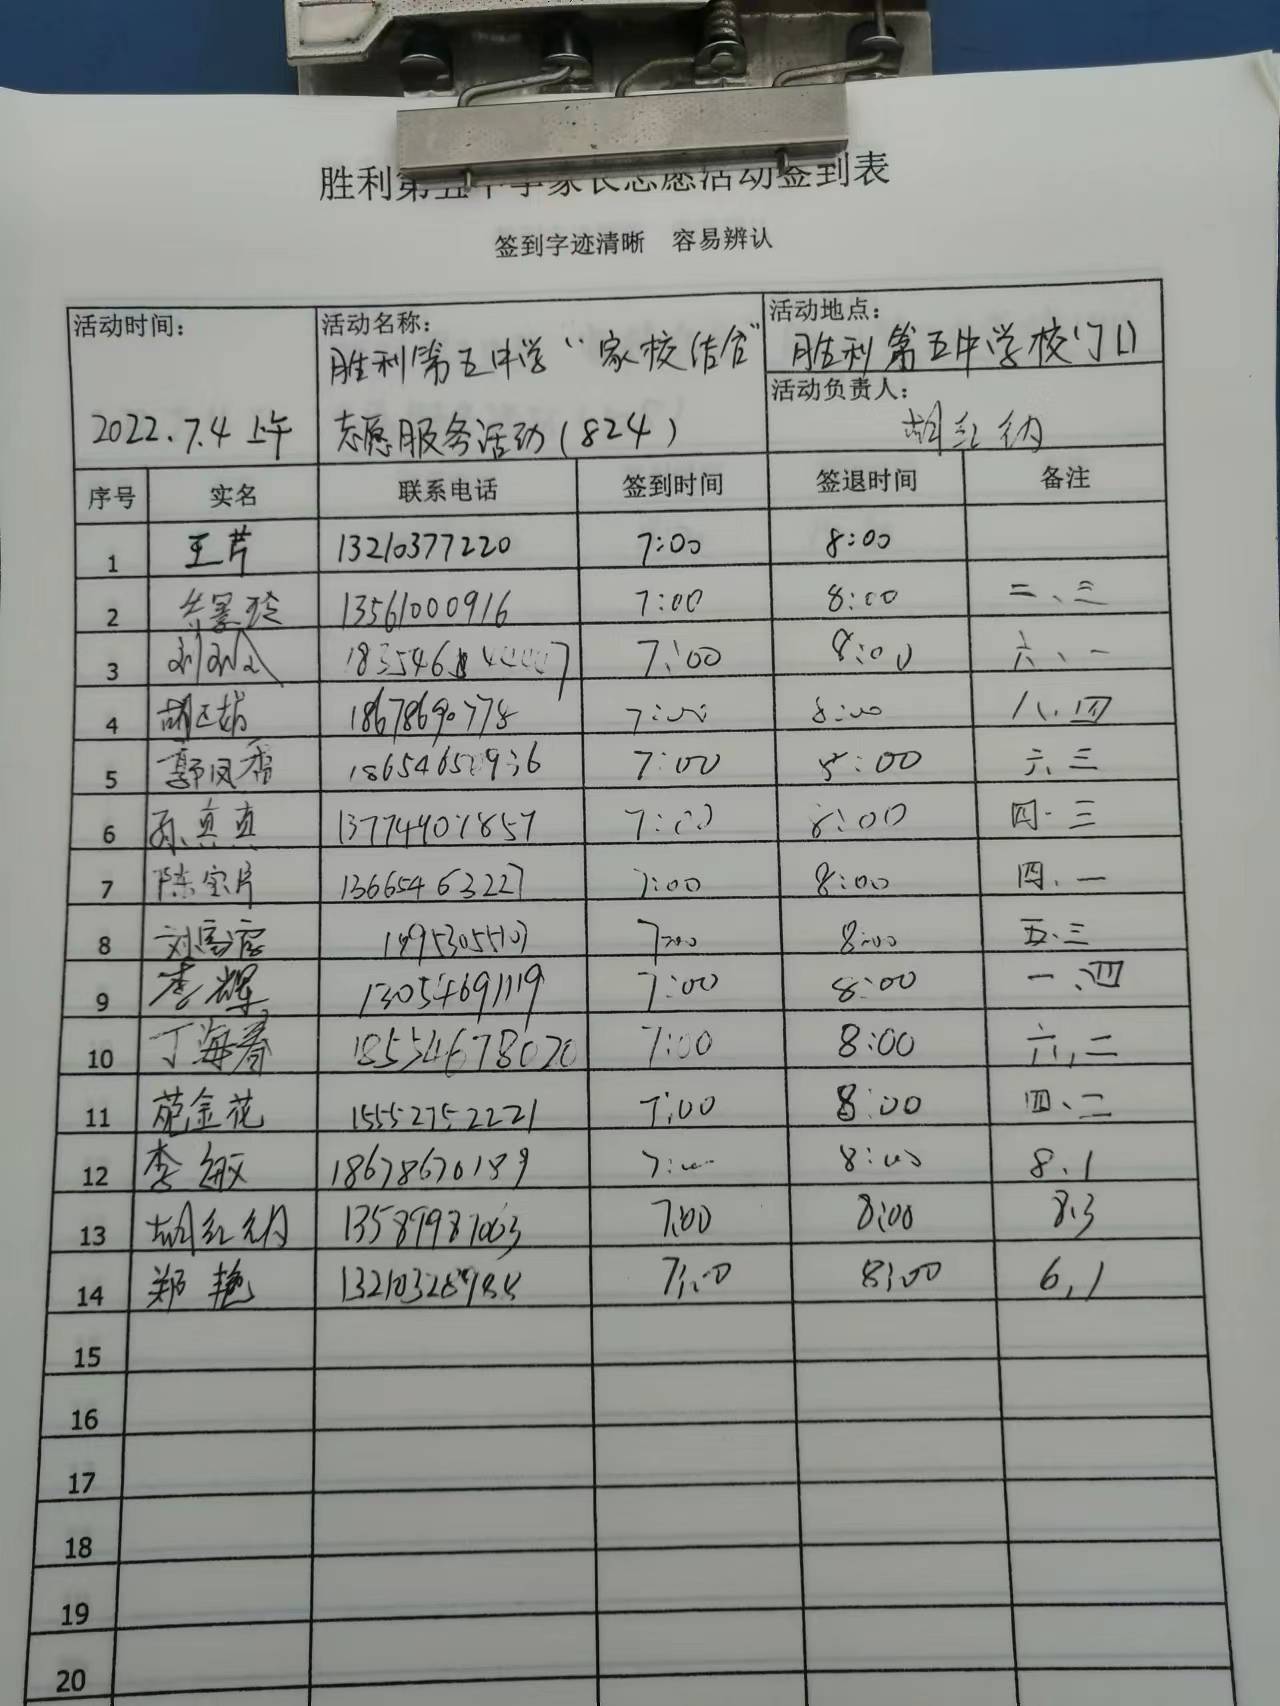 胜利第五中学家长志愿活动签到表
签到字迹清晰 容易辨认
活动时间： 活动名称： 活动地点：
胜利第五中学“家校结合” 胜利第五中学校门口
活动负责人：
2022.7.4上午 志愿服务活动（824） 胡红纳
序号 实名 联系电话 签到时间 签退时间 备注
1 王芹 13210377220 7:00 8:00
2 13561000916 7:00 8:00 二、三
3 7:00 8:00 六、一
4 18678690778 7:00 8:00 八、四
5 郭凤香 7:00 8:00 六、三
6 孙真真 7:00 8:00 四·三
7 陈宝月 13665463227 7:00 8:00 四、一
8 7:00 8:00 五、三
9 李辉 13054691119 7:00 8:00 一、四
10 丁海春 18554678020 7:00 8:00 六，二
11 苑金花 15552752221 7:00 8:00 四、二
12 李敏 18678670189 7:00 8:00 8、1
13 胡红纳 13589987063 7:00 8:00 8.3
14 郑艳 7:00 8:00 6，1
15
16
17
18
19
20